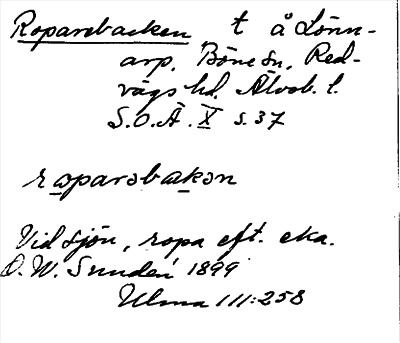 Roparebacken, t å Lönn-
arp, Böne sn, Red-
vägs hd. Älvsb. l.
S.O.Ä. X s. 37
roparəbakən
Vid sjön, ropa eft. eka.
O. W. Sundén 1899
Ulma 111:258